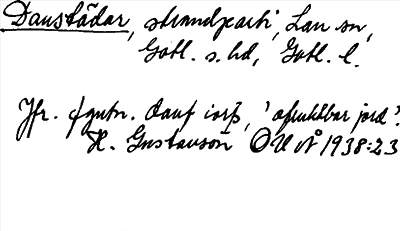 Dauslädar, strandparti, Lau sn,
Gotl. s. hd, Gotl. l.
Jfr. fgutn. dauf iorþ, 'ofruktbar jord'.
H. Gustavson OUÅ 1938:23